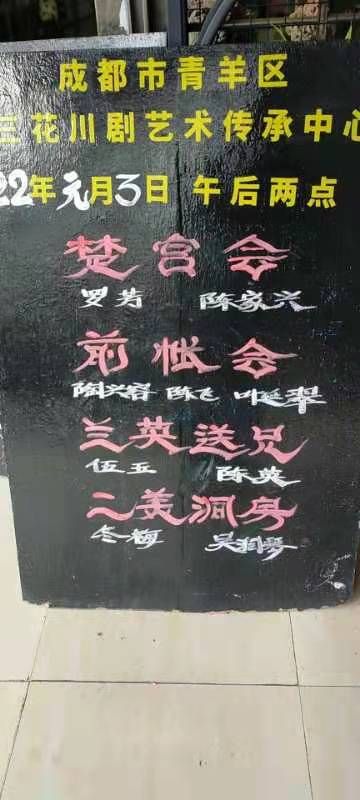 成都市青羊区
三花川剧艺术传承中心
22年元月3日 午后两点
楚宫会
罗芳 陈家兴
前帐会
陶兴容 陈飞 叶延翠
兰英送兄
伍五 陈英
二美洞房
冬梅